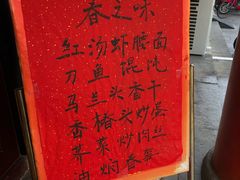 春之味
红汤虾腰面
刀鱼馄饨
马兰头香干
香椿头炒蛋
荠菜炒肉丝
油焖春笋